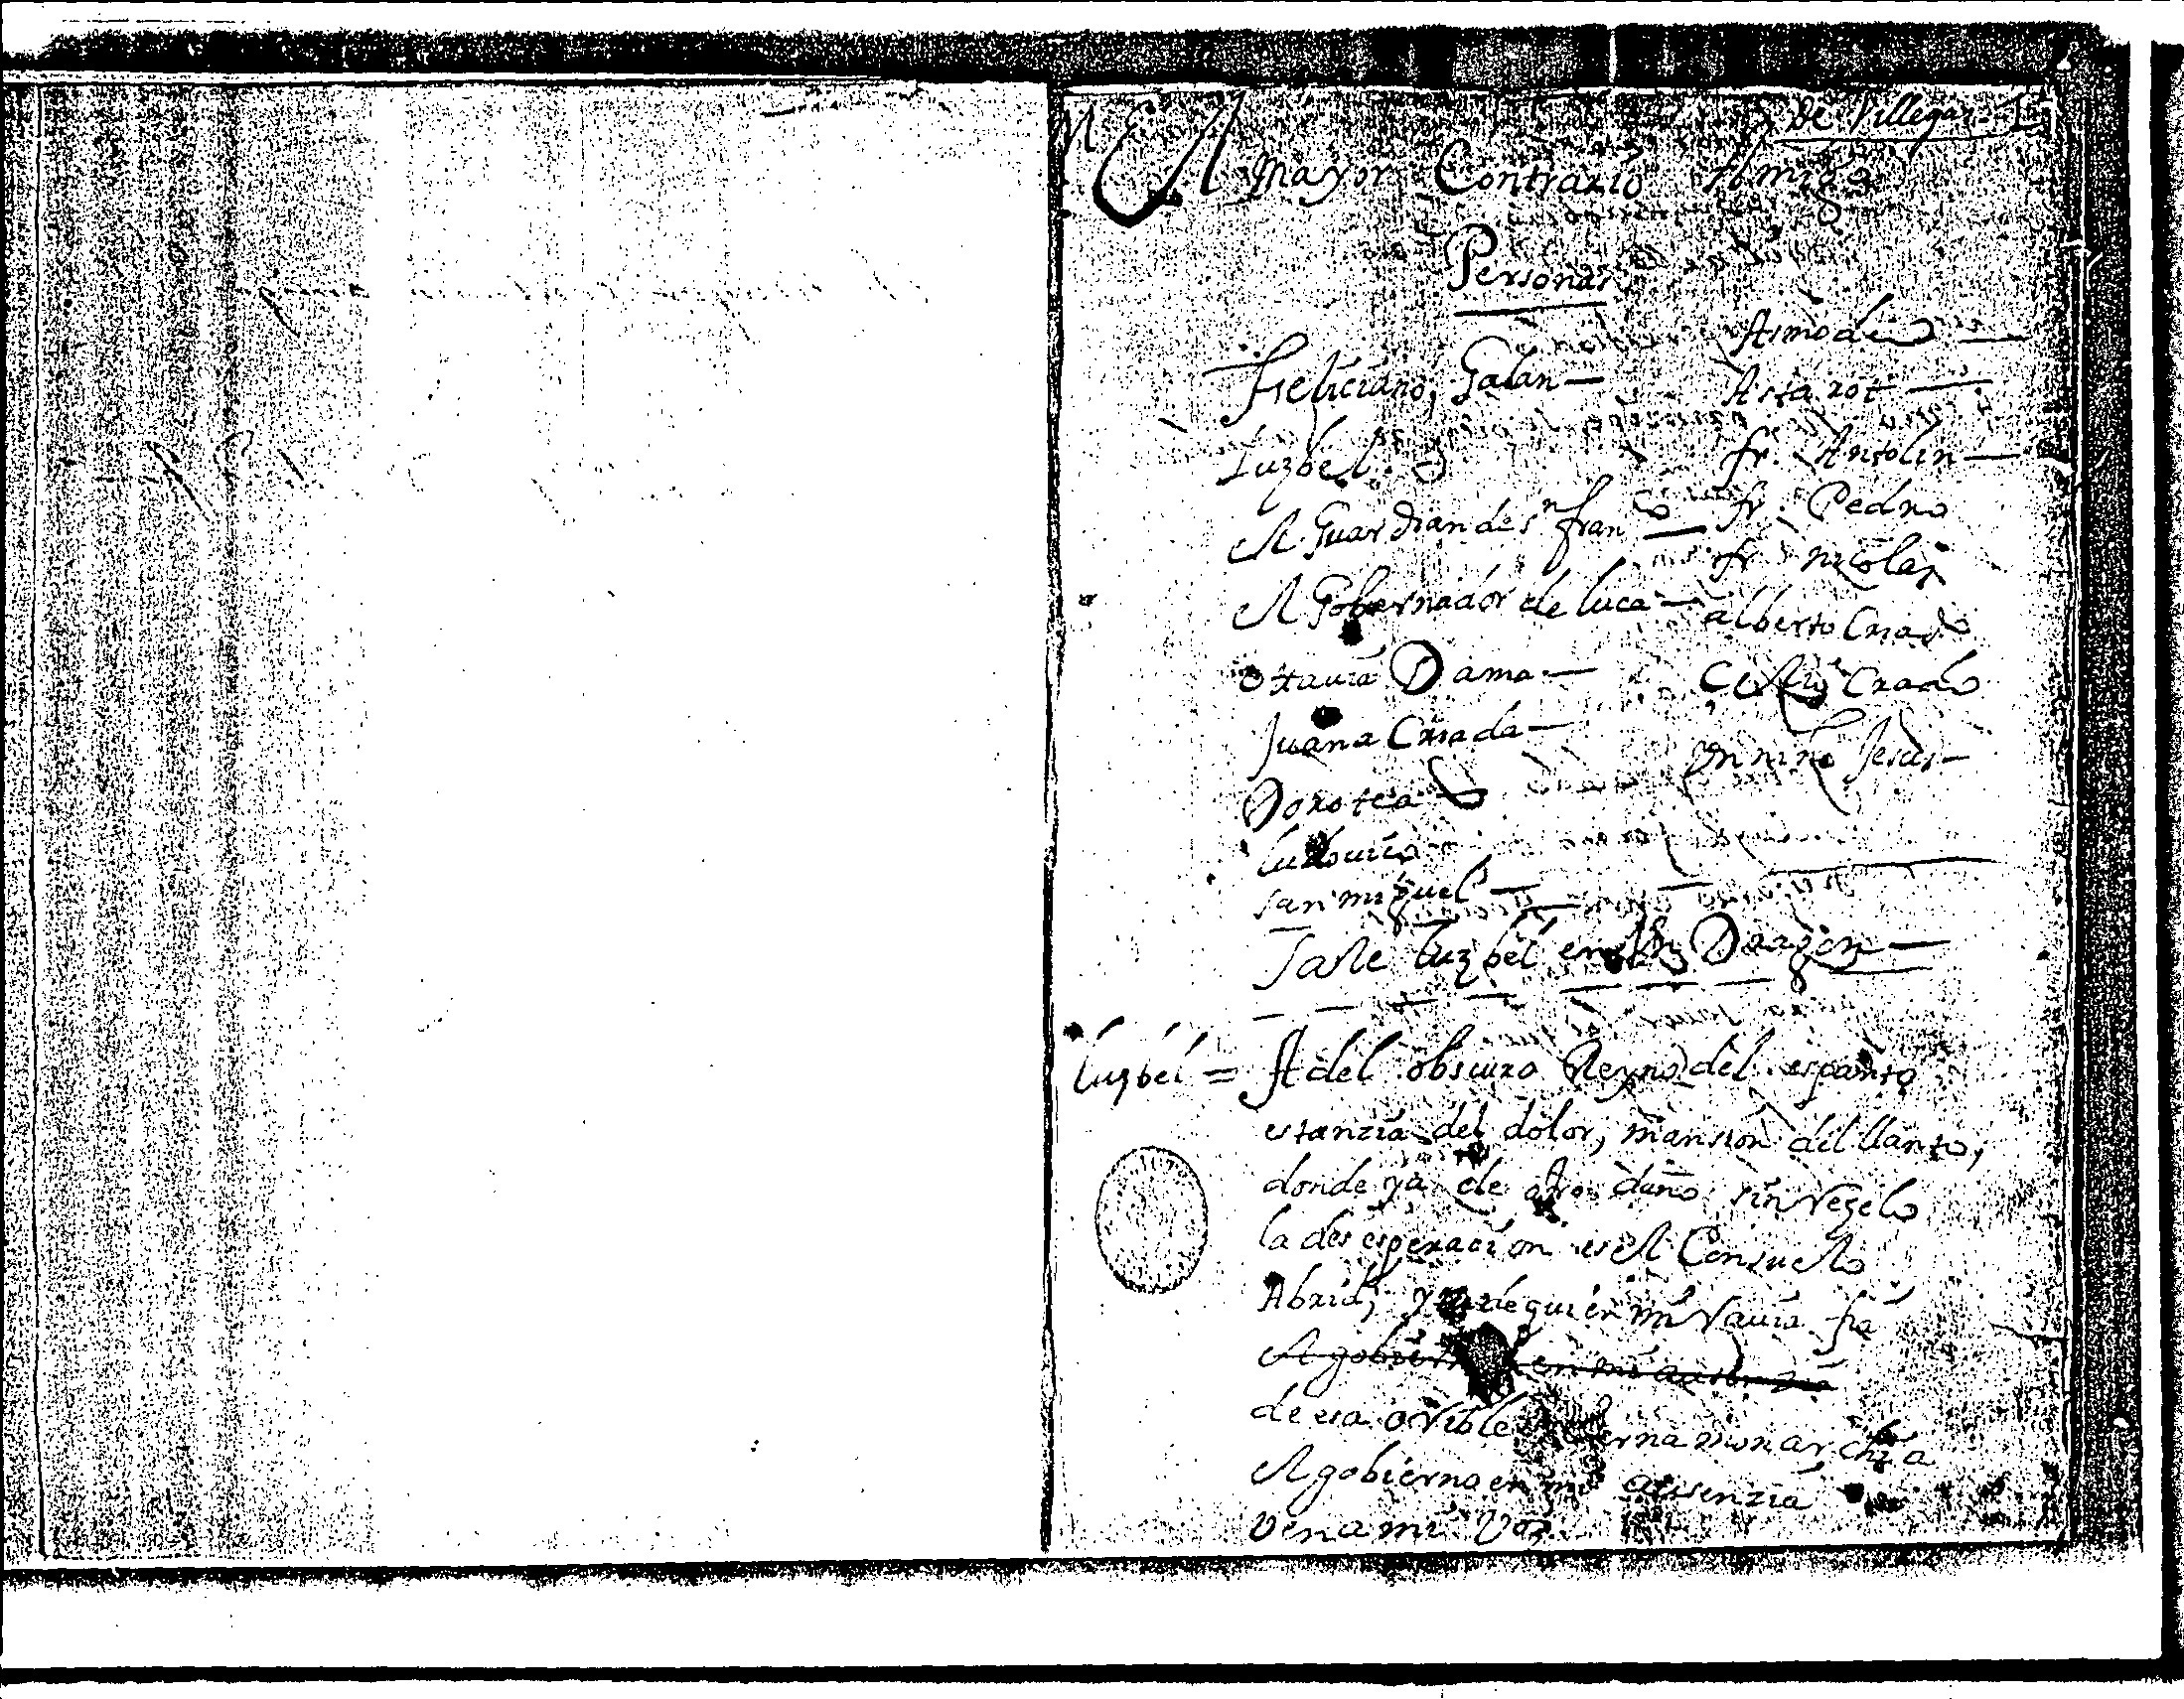 De Villegas 1
El mayor Contrario Amigo
Personas
Feliciano, Galan —
Luzbel
El Guardian de sn franco —
El Gobernador de luca —
Ottauia Dama —
Juana Criada —
Dorotea
Ludouico
san miguel —
Asmodeo —
Astarot —
fr. Antolin —
fr. Pedro
fr. nicolas
alberto Criado
Celio Criado
Un niño Jesus —
Sale luzbel en Un Dragon —
luzbel = A del obscuro Reyno del espanto
estanzia del dolor, mansion del llanto,
donde ya de otro daño sin Rezelo
la desesperacion es el Consuelo
Abrid, de quien mi Rauia fia
El gobierno en mi ausenzia
de esa orrible eterna monarchia
el gobierno en mi ausenzia
ven a mi Voz